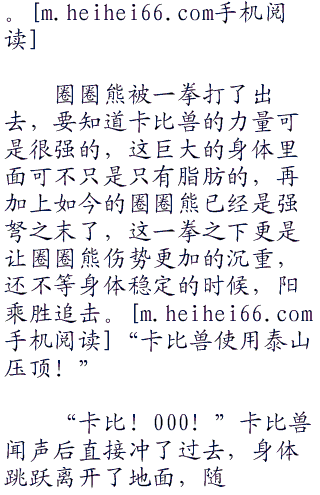 。[m.heihei66.com手机阅
读]
圈圈熊被一拳打了出
去，要知道卡比兽的力量可
是很强的，这巨大的身体里
面可不只是只有脂肪的，再
加上如今的圈圈熊已经是强
弩之末了，这一拳之下更是
让圈圈熊伤势更加的沉重，
还不等身体稳定的时候，阳
乘胜追去。[m.heihei66.com
手机阅读]“卡比兽使用泰山
压顶！”
“卡比！000！”卡比兽
闻声后直接冲了过去，身体
跳跃离开了地面，随